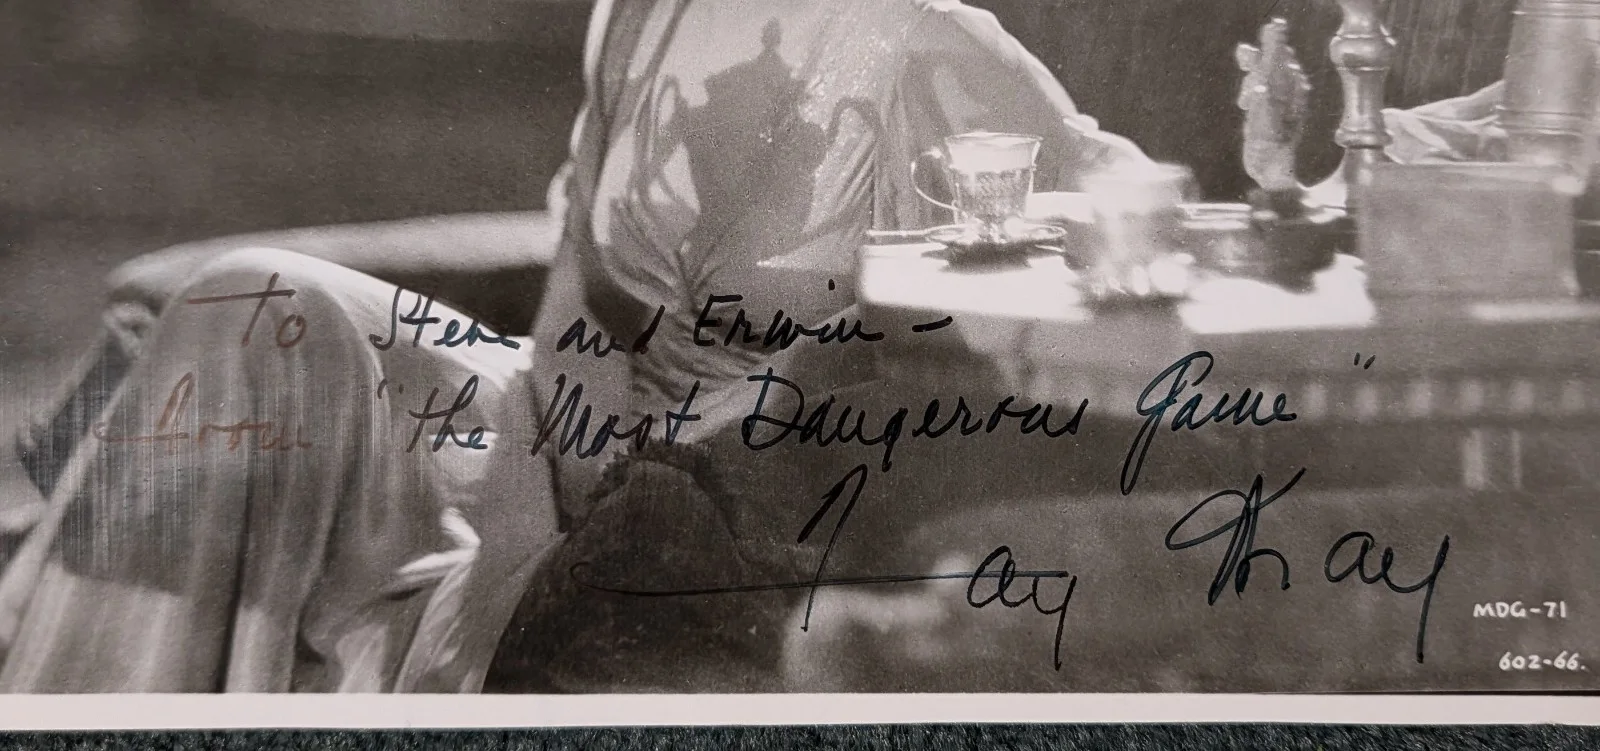 To Steve and Erwin -
From "the Most Dangerous Game"
Fay Wray
MDG-71
602-66.